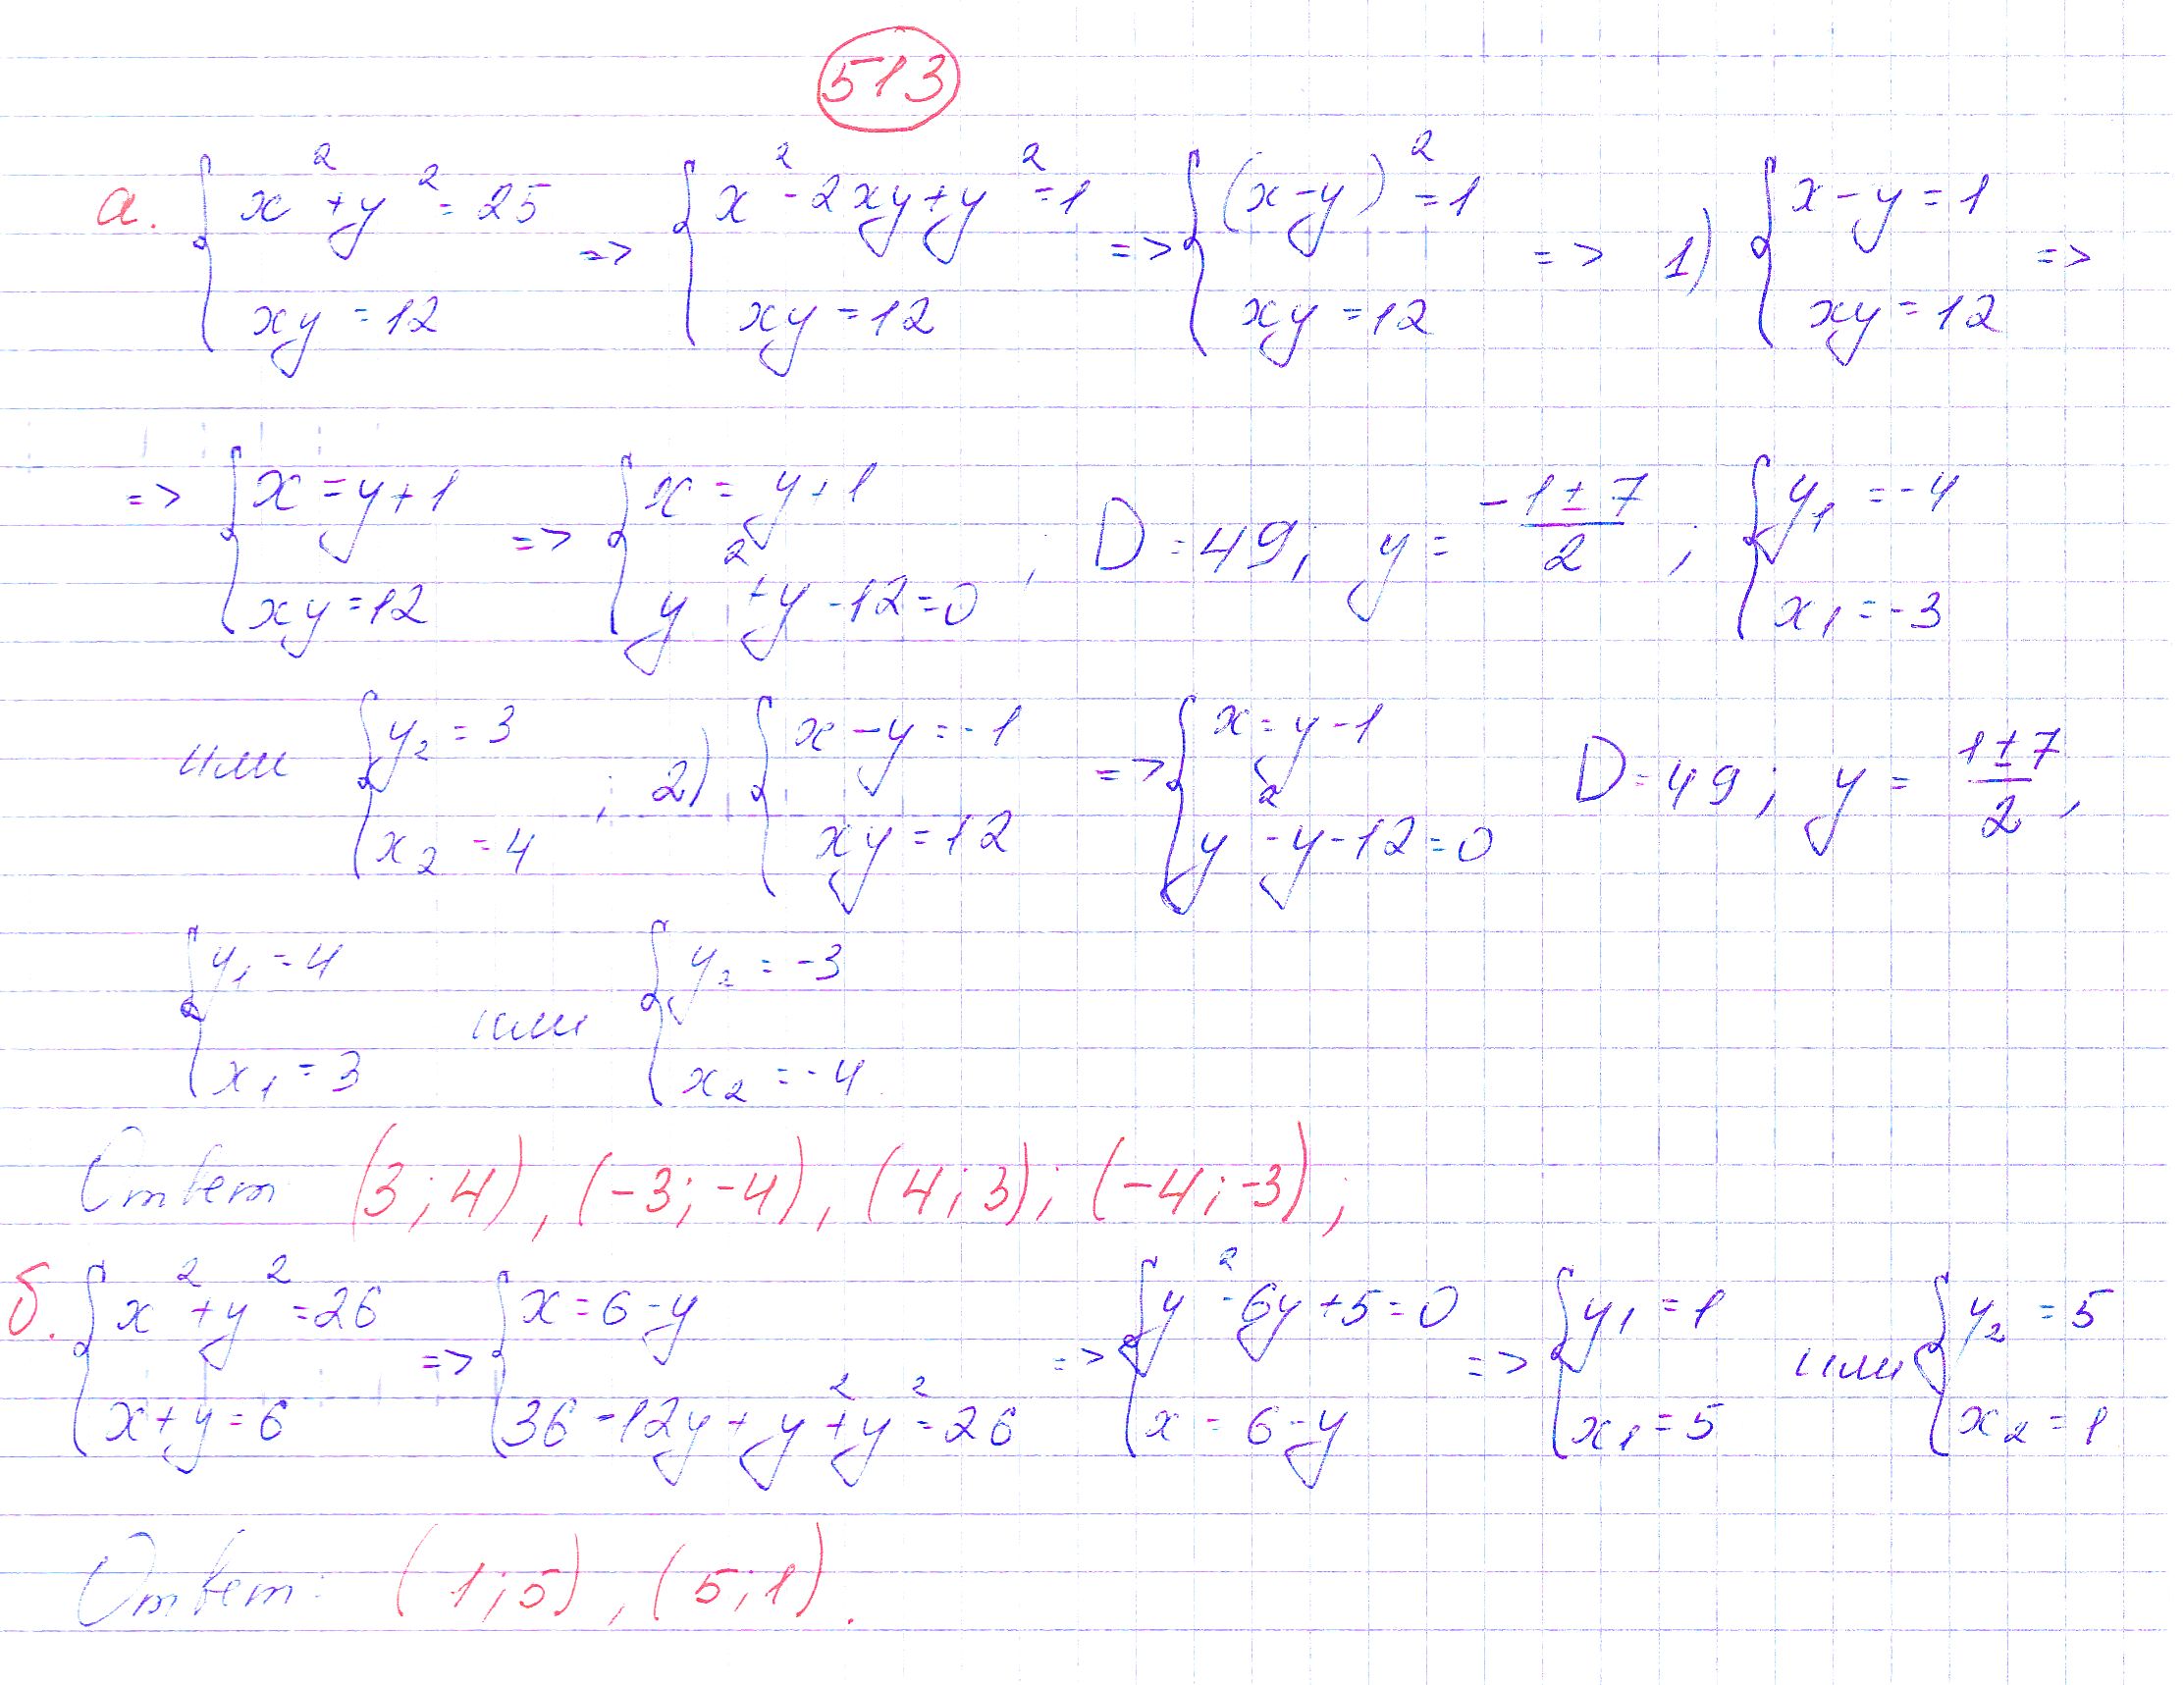 513
а. { x² + y² = 25 ; xy = 12 => { x² - 2xy + y² = 1 ; xy = 12 => { (x - y)² = 1 ; xy = 12 => 1) { x - y = 1 ; xy = 12 =>
=> { x = y + 1 ; xy = 12 => { x = y + 1 ; y² + y - 12 = 0 ; D = 49; y = (-1 ± 7)/2 ; { y₁ = -4 ; x₁ = -3
или { y₂ = 3 ; x₂ = 4 ; 2) { x - y = -1 ; xy = 12 => { x = y - 1 ; y² - y - 12 = 0 D = 49; y = (1 ± 7)/2,
{ y₁ = 4 ; x₁ = 3 или { y₂ = -3 ; x₂ = -4
Ответ (3; 4), (-3; -4), (4; 3); (-4; -3);
б. { x² + y² = 26 ; x + y = 6 => { x = 6 - y ; 36 - 12y + y² + y² = 26 => { y² - 6y + 5 = 0 ; x = 6 - y => { y₁ = 1 ; x₁ = 5 или { y₂ = 5 ; x₂ = 1
Ответ: (1; 5), (5; 1).